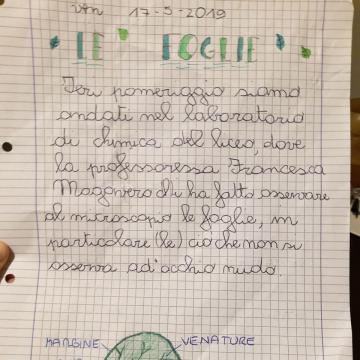 Ven 17-5-2019
LE FOGLIE
Ieri pomeriggio siamo
andati nel laboratorio
di chimica del liceo, dove
la professoressa Francesca
ci ha fatto osservare
al microscopio le foglie, in
particolare (le) ciò che non si
osserva ad'occhio nudo.
MARGINE
VENATURE